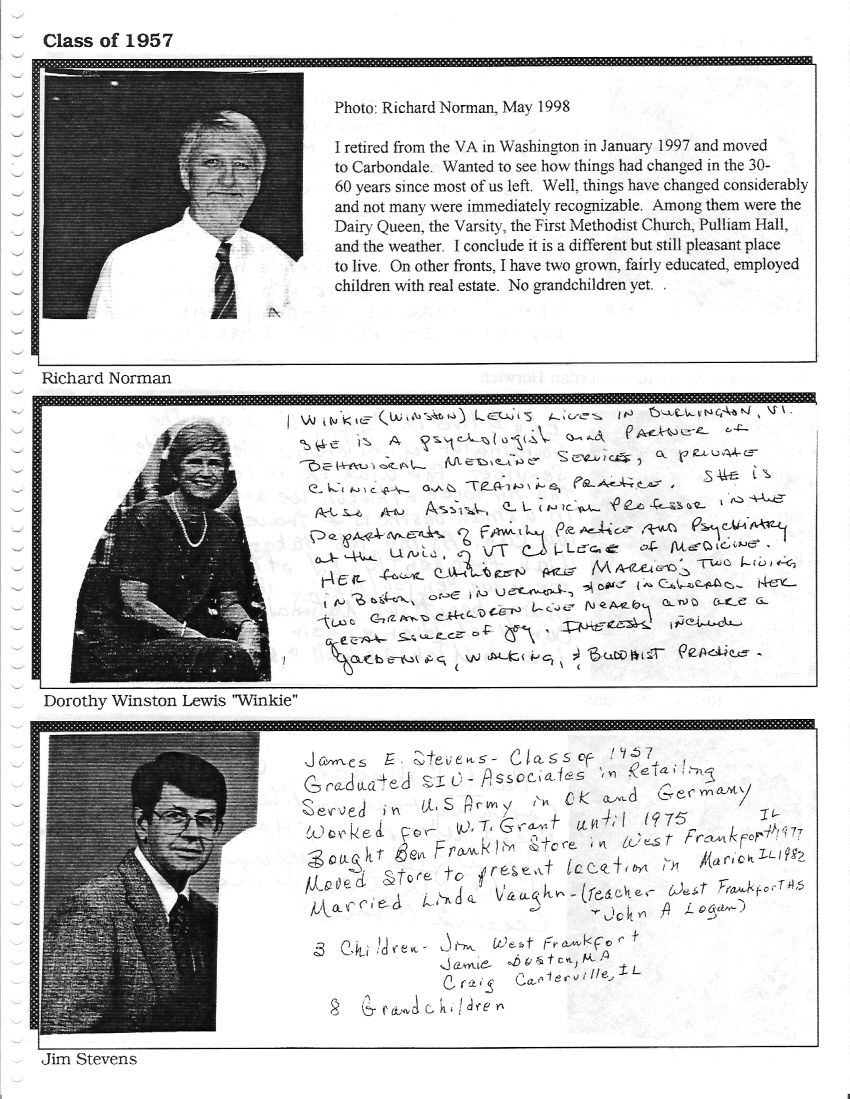 Class of 1957
Photo: Richard Norman, May 1998
I retired from the VA in Washington in January 1997 and moved
to Carbondale. Wanted to see how things had changed in the 30-
60 years since most of us left. Well, things have changed considerably
and not many were immediately recognizable. Among them were the
Dairy Queen, the Varsity, the First Methodist Church, Pulliam Hall,
and the weather. I conclude it is a different but still pleasant place
to live. On other fronts, I have two grown, fairly educated, employed
children with real estate. No grandchildren yet. .
Richard Norman
WINKIE (WINSTON) LEWIS LIVES IN BURLINGTON, VT.
SHE IS A psychologist and PARTNER of
BEHAVIORAL MEDICINE SERVICES, a PRIVATE
CLINICAL AND TRAINING PRACTICE. SHE IS
ALSO AN ASSIST. CLINICAL PROFESSOR IN THE
DEPARTMENTS of FAMILY PRACTICE AND PSYCHIATRY
at the UNIV. of VT COLLEGE of MEDICINE.
HER four CHILDREN ARE MARRIED; TWO LIVING
IN BOSTON, ONE IN VERMONT, & ONE IN COLORADO. HER
TWO GRANDCHILDREN LIVE NEARBY AND ARE A
GREAT SOURCE of JOY. INTERESTS include
GARDENING, WALKING, & BUDDHIST PRACTICE.
Dorothy Winston Lewis "Winkie"
James E. Stevens- Class of 1957
Graduated SIU-Associates in Retailing
Served in U.S Army in OK and Germany
Worked for W.T. Grant until 1975
Bought Ben Franklin Store in West Frankfort IL 1977
Moved Store to present location in Marion IL 1982
Married Linda Vaughn-(Teacher West Frankfort HS
+ John A Logan)
3 Children- Jim West Frankfort
Jamie Boston, MA
Craig Carterville, IL
8 Grandchildren
Jim Stevens